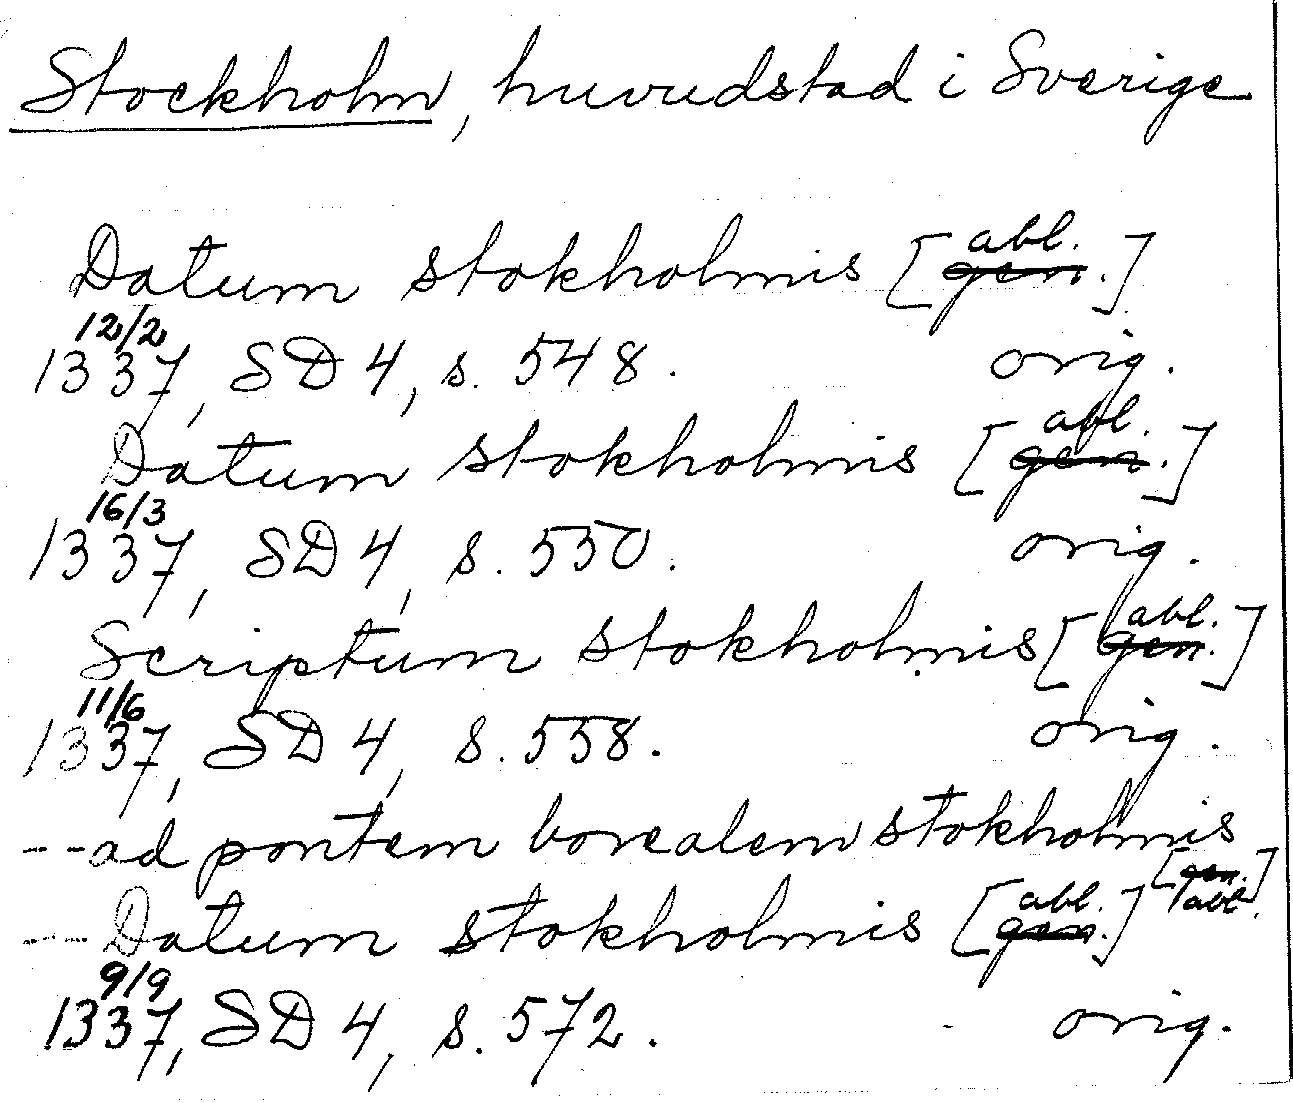 Stockholm, huvudstad i Sverige
Datum stokholmis [gen. abl.]
12/2
1337, SD 4, s. 548. orig.
Datum stokholmis [gen. abl.]
16/3
1337, SD 4, s. 550. orig.
Scriptum stokholmis [gen. abl.]
11/6
1337, SD 4, s. 558. orig.
--ad pontem borealem stokholmis
[gen. abl.]
--Datum stokholmis [gen. abl.]
9/9
1337, SD 4, s. 572. orig.